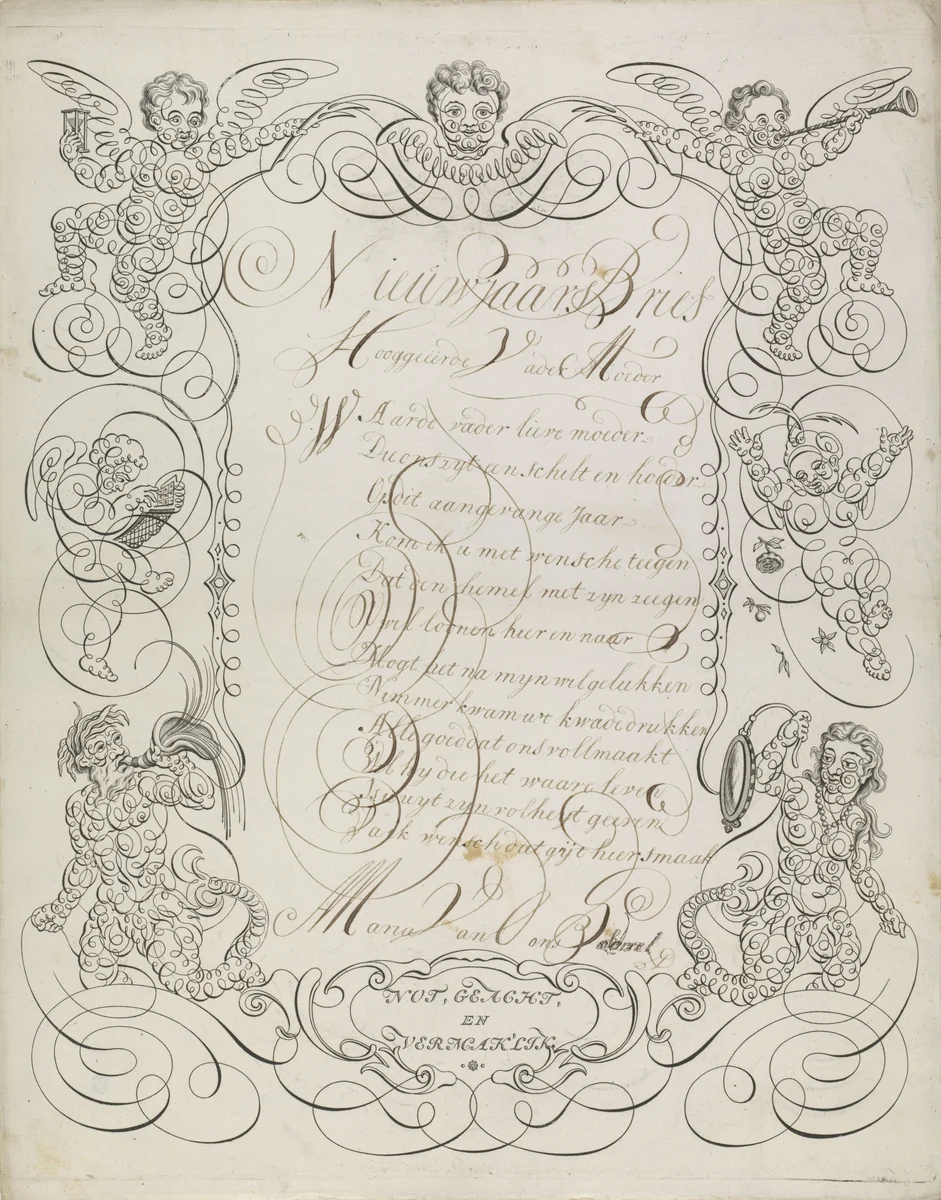 Nieuwjaars Brief
Hooggeerde Vader Moeder
WAarde vader lieve moeder
Die ons zyt een schilt en hoeder
Op dit aangevange Jaar
Kom ik u met wensche teegen
Dat den hemel met zyn zeegen
U wil loonen hier en naar
Mogt het na myn wil gelukken
Nimmer kwam u't kwade drukken
Alle goed dat ons vollmaakt
Wil hy die het waare leven
Is uyt zyn volheyt geeven
Da ik wensch dat gijt hier smaak
Maria Van
NUT, GEACHT,
EN
VERMAK'LIK